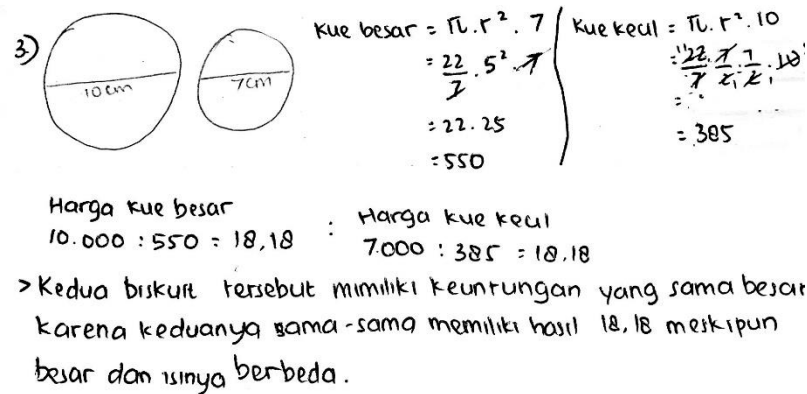 3.)
10 cm
7 cm
Kue besar = π.r². 7
= 22/7 . 5² . 7
= 22.25
= 550
Kue kecil = π.r².10
= 22/7 . 7/2 . 7/2 . 10
=
= 385
Harga kue besar
10.000 : 550 = 18,18
:
Harga kue kecil
7.000 : 385 = 18,18
> Kedua biskuit tersebut mimiliki keuntungan yang sama besar
karena keduanya sama-sama memiliki hasil 18,18 meskipun
besar dan isinya berbeda.